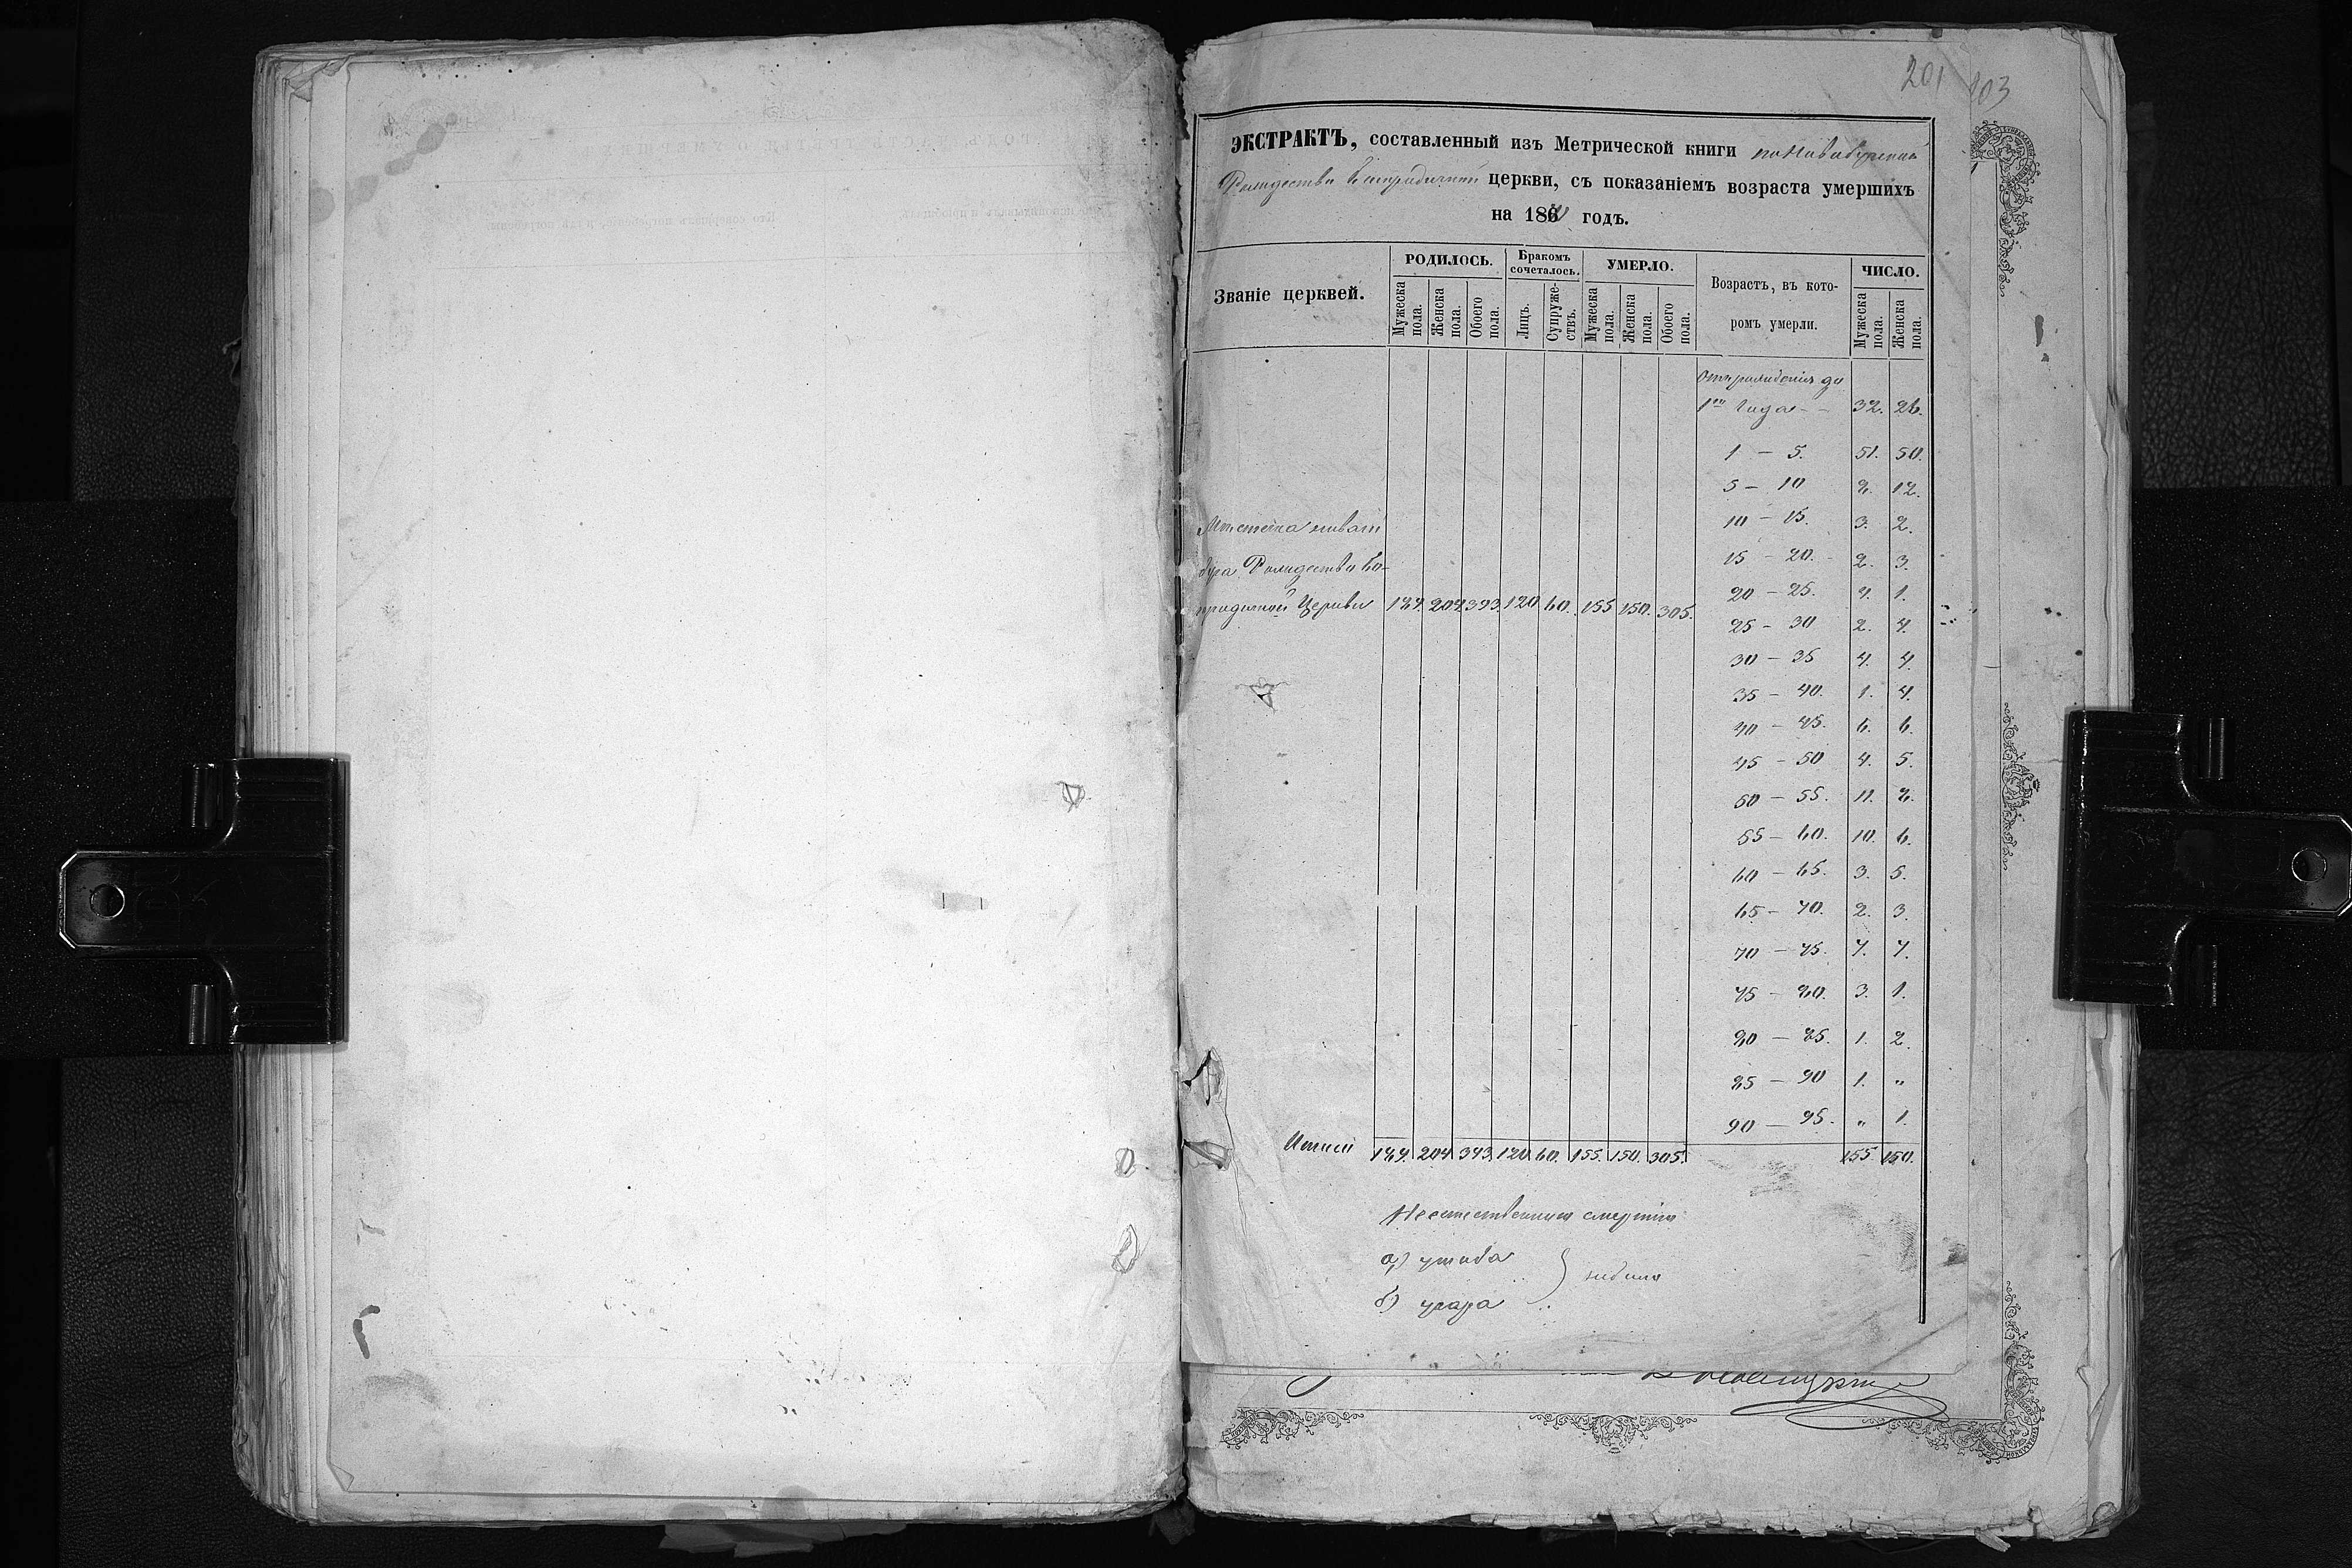 201 103
ЭКСТРАКТЪ, составленный изъ Метрической книги
Рождество Богородичной церкви, съ показаніемъ возраста умершихъ
на 186 годъ.
Званіе церквей.
РОДИЛОСЬ.
Мужеска пола.
Женска пола.
Обоего пола.
Бракомъ сочеталось.
Лицъ.
Супружествъ.
УМЕРЛО.
Мужеска пола.
Женска пола.
Обоего пола.
Возрастъ, въ которомъ умерли.
ЧИСЛО.
Мужеска пола.
Женска пола.
Отъ рожденія до
1го года - - 32. 26.
1 - 5. 51. 50.
5 - 10 8. 12.
10 - 15. 3. 2.
15 - 20. 2. 3.
20 - 25. 4. 1.
25 - 30 2. 4.
30 - 35 4. 4.
35 - 40. 1. 4.
40 - 45. 6. 6.
45 - 50 4. 5.
50 - 55. 11. 8.
55 - 60. 10. 6.
60 - 65. 3. 5.
65 - 70. 2. 3.
70 - 75. 7. 7.
75 - 80. 3. 1.
80 - 85. 1. 2.
85 - 90 1. "
90 - 95. " 1.
Мѣстечка
Рождество Бо-
городичной Церкви 189. 204. 393. 120. 60. 155. 150. 305.
Итого 189. 204. 393. 120. 60. 155. 150. 305. 155. 150.
Неестественною смертію
а)
б) угара